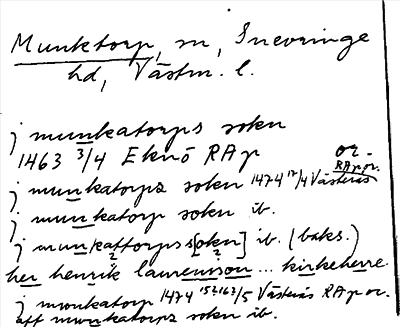 Munktorp, sn, Snevringe
hd, Västm. l.
j munkatorps sokn
1463 3/4 Eknö RAp or.
j munkatorpz sokn 1474 12/4 Västerås RAp or.
j munkatorp sokn ib.
j munkattorps s[okn] ib. (baks.)
her henrik laurensson ... kirkeherre
j mwnkatorp 1474 /5 Västerås RAp or.
aff munkatorps sokn ib.